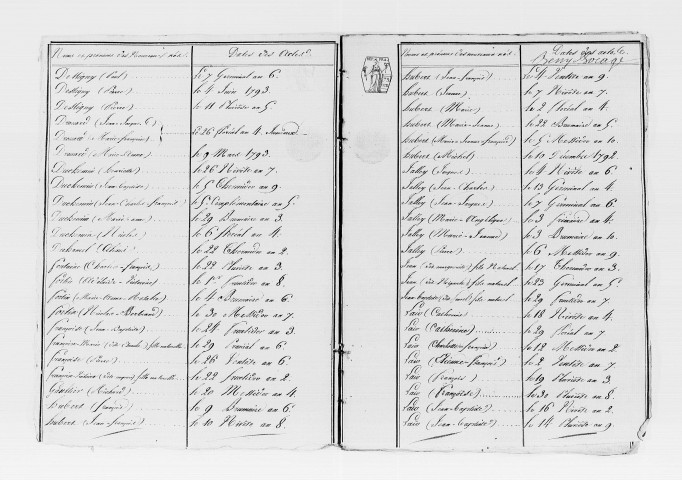 Noms et prénoms des Nouveaux nés. Dates des Actes.
Dettigny (Paul) le 7 Germinal an 6.
Dettigny (Pierre) le 4 Juin 1793.
Dettigny (Pierre) le 11 an 5.
(Jean-Jacques &)
le 26 floréal an 4. Jumeaux
(Marie-françoise)
(Marie-Anne) le 9 Mars 1793.
Duchemin le 26 Nivôse an 7.
Duchemin (Jean-Baptiste) le 5 Thermidor an 9.
Duchemin (Jean-Charles-françois) le 5e Complémentaire an 5.
Duchemin (Marie-anne) le 29 Brumaire an 3.
Duchemin (Nicolas) le 6 floréal an 4.
le 22 Thermidor an 2.
fontaine (Charles-françois) le 22 Nivôse an 3.
fortin le 1er fructidor an 8.
fortin (Marie-Anne-Natalie) le 4 Brumaire an 6.
fortin (Nicolas-Bertrand) le 30 Messidor an 7.
françoise (Jean-Baptiste) le 24 fructidor an 3.
fille naturelle le 29 Prairial an 6.
françoise (Pierre) le 26 Ventôse an 6.
fille naturelle le 22 fructidor an 2.
Gautier (Richard) le 20 Messidor an 4.
hubert (françois) le 9 Brumaire an 6.
hubert (Jean-françois) le 10 Nivôse an 8.
Noms et prénoms des nouveaux nés. Dates des actes.
Beny Bocage
hubert (Jean-françois) le 4 Ventôse an 9.
hubert (Jeanne) le 7 Nivôse an 7.
hubert (Marie) le 2 floréal an 4.
hubert (Marie-Jeanne) le 22 Brumaire an 5.
hubert (Marie-françoise) le 5 Messidor an 10.
hubert (Michel) le 10 Décembre 1792.
Jalley (Jacques) le 4 Nivôse an 6.
Jalley (Jean-Charles) le 13 Germinal an 4.
Jalley (Jean-Jacques) le 7 Germinal an 6.
Jalley (Marie-Angélique) le 3 frimaire an 4.
Jalley (Marie-Jeanne) le 3 Brumaire an 10.
Jalley (Pierre) le 6 Messidor an 9.
Jean fils Naturel le 17 Thermidor an 3.
Jean fils naturel le 23 Germinal an 5.
Jean-Baptiste fils naturel le 29 fructidor an 7.
Lair (Catherine) le 18 Nivôse an 4.
Lair (Catherine) le 29 floréal an 7.
Lair (Charlotte-françoise) le 12 Messidor an 2.
Lair (Etienne-françois) le 2 Ventôse an 7.
Lair (françois) le 19 Pluviôse an 3.
Lair (Françoise) le 30 Pluviôse an 8.
Lair (Jean-Baptiste) le 16 Nivôse an 2.
Lair (Jean-Baptiste) le 14 Pluviôse an 9.